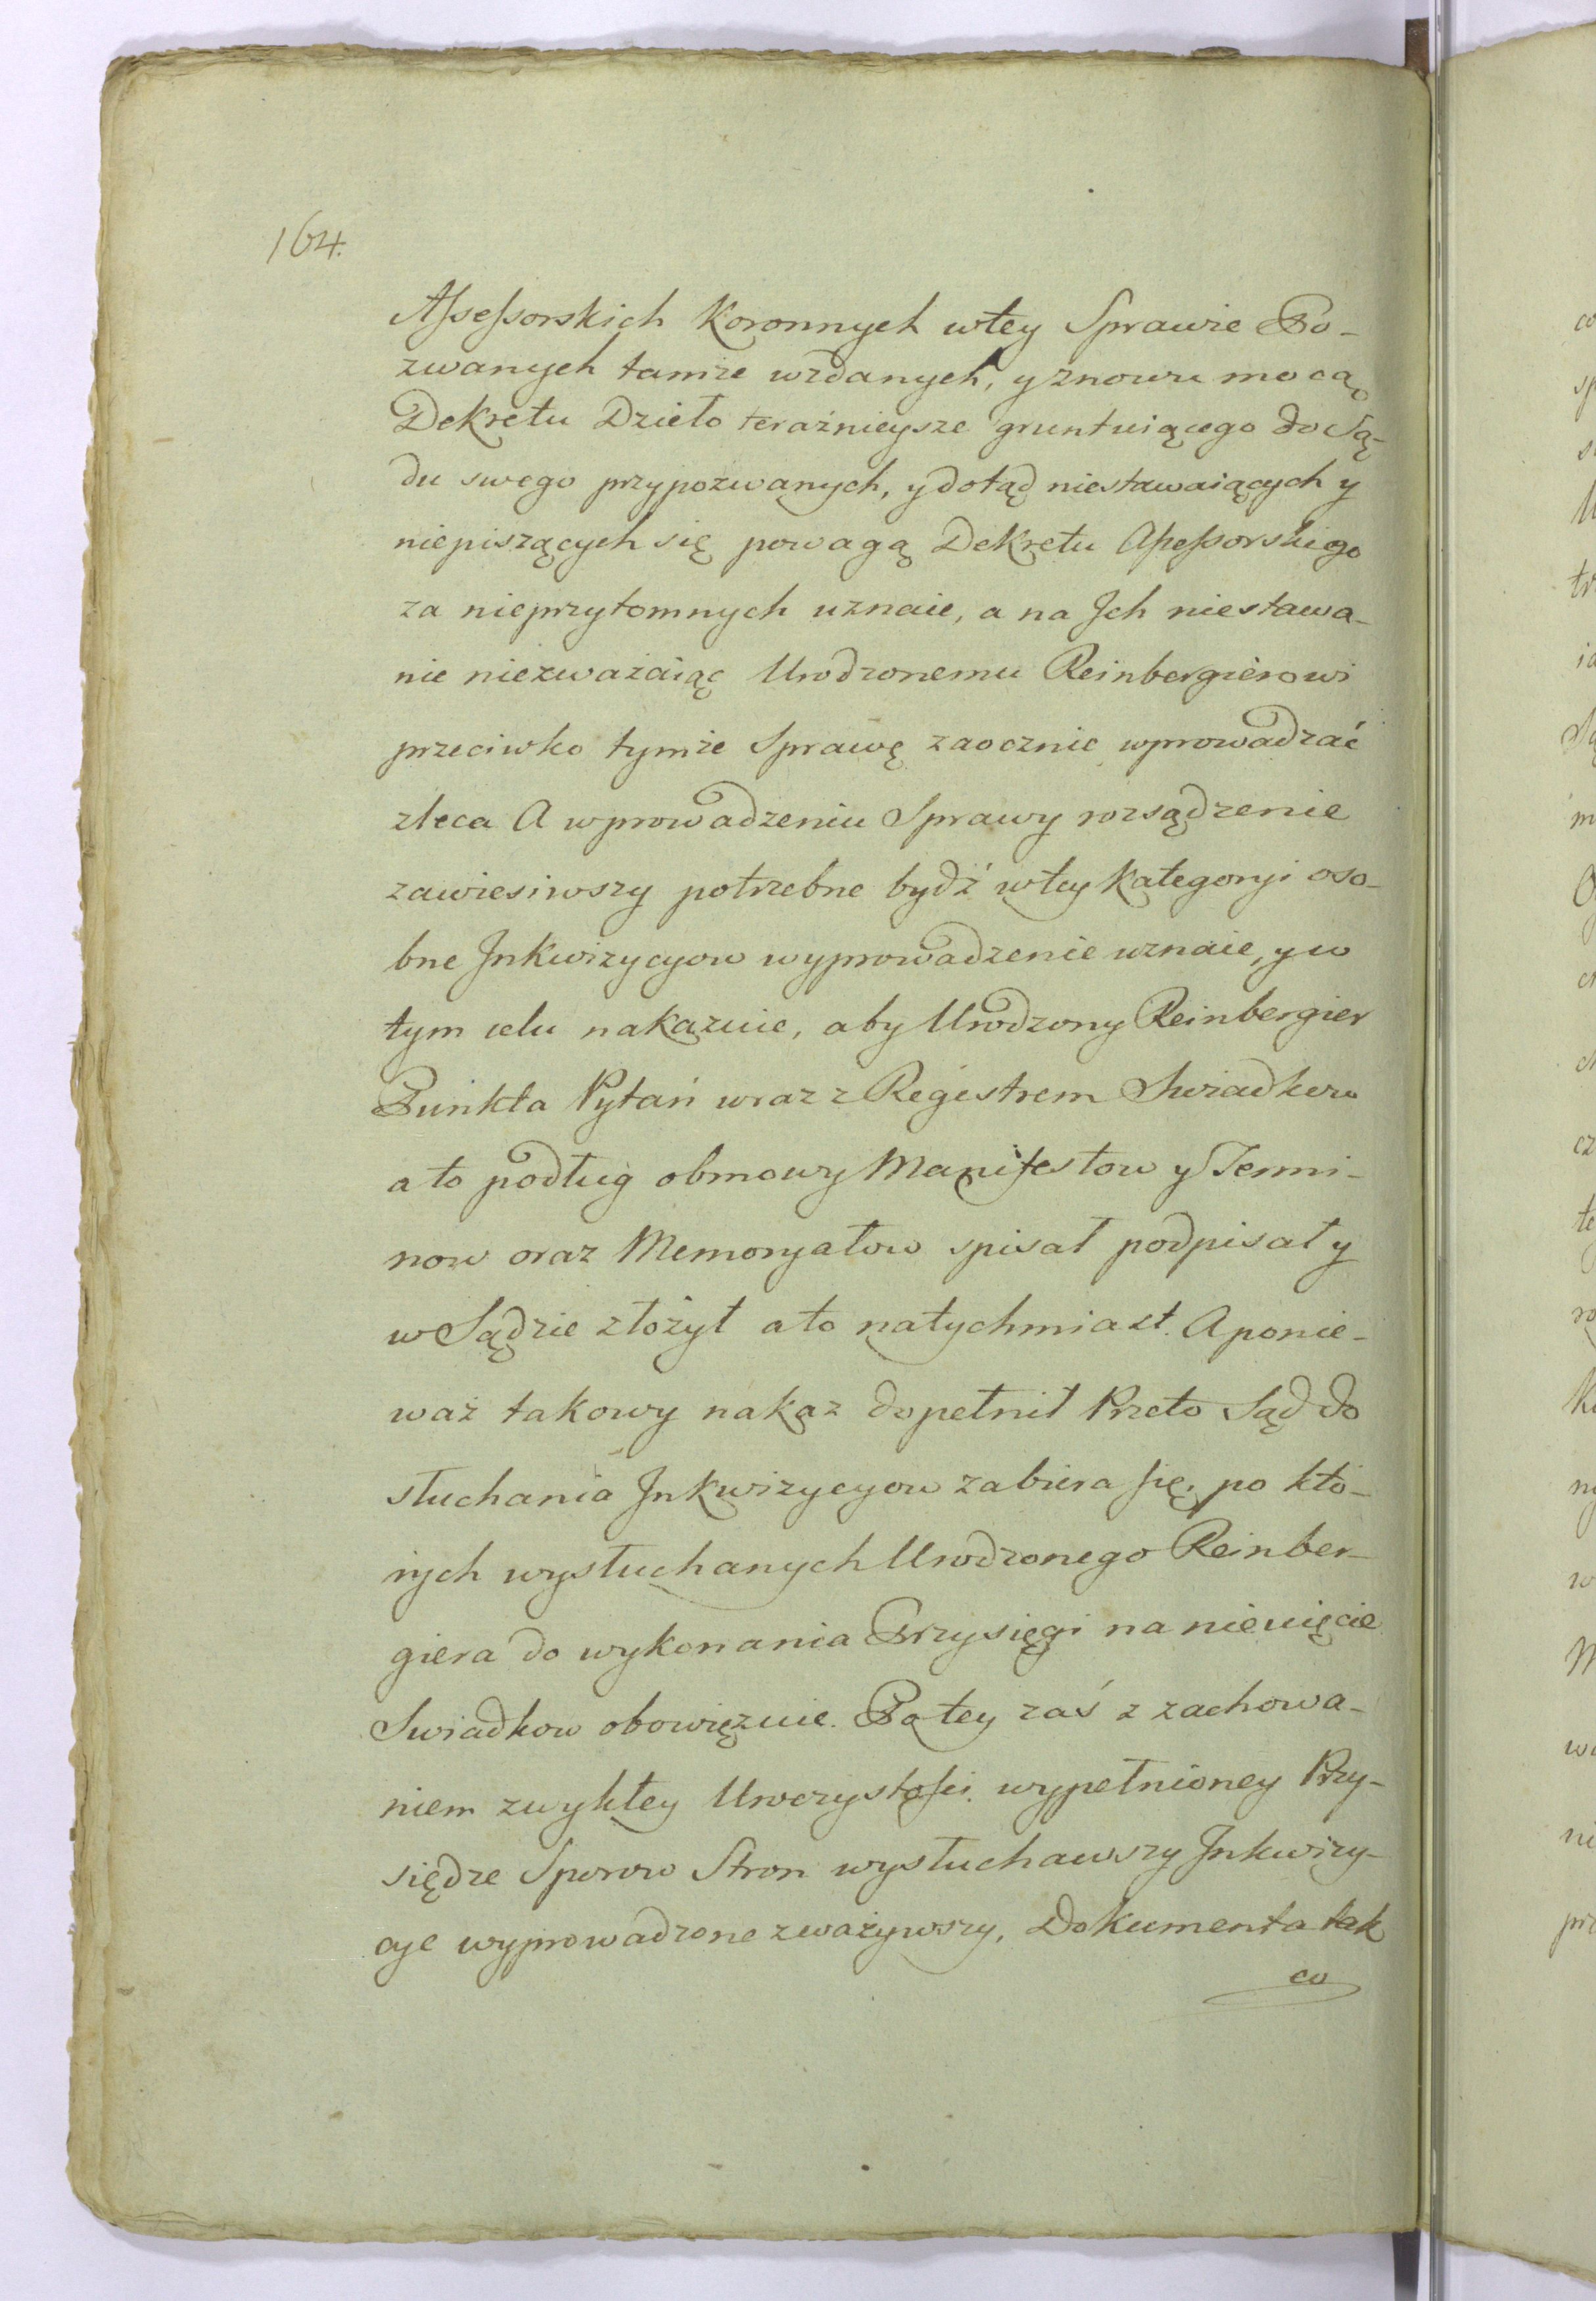 164.
Assessorskich Koronnych wtey Sprawie Po-
zwanych tamże wzdanych, y znowu mocą
Dekretu Dzieło teraźnieysze gruntuiącego do Są-
du swego przypozwanych, y dotąd niestawaiących y
niepiszących się powagą Dekretu Assessorskiego
za nieprzytomnych uznaie, a na Jch niestawa-
nie niezważaiąc Urodzonemu Reinbergierowi
przeciwko tymże Sprawę zaocznie wprowadzać
zleca A wprowadzeniu Sprawy rozsądzenie
zawiesiwszy potrzebne bydź wtey Kategoryi oso-
bne Jnkwizycyow wyprowadzenie uznaie, y w
tym celu nakazuie, aby Urodzony Reinbergier
Punkta Pytań wraz z Regestrem Swiadkow
a to podług obmowy Manifestow y Termi-
now oraz Memoryałow spisał podpisał y
w Sądzie złożył a to natychmiast. A ponie-
waż takowy nakaz dopełnił Przeto Sąd do
słuchania Jnkwizycyow zabiera się, po któ-
rych wysłuchanych Urodzonego Reinber-
giera do wykonania Przysięgi na nieuięcie
Swiadkow obowięzuie. Po tey zaś z zachowa-
niem zwykłey Uroczystości wypełnioney Przy-
siędze Sporow Stron wysłuchawszy Jnkwizy-
cye wyprowadzone zważywszy, Dokumenta tak
co